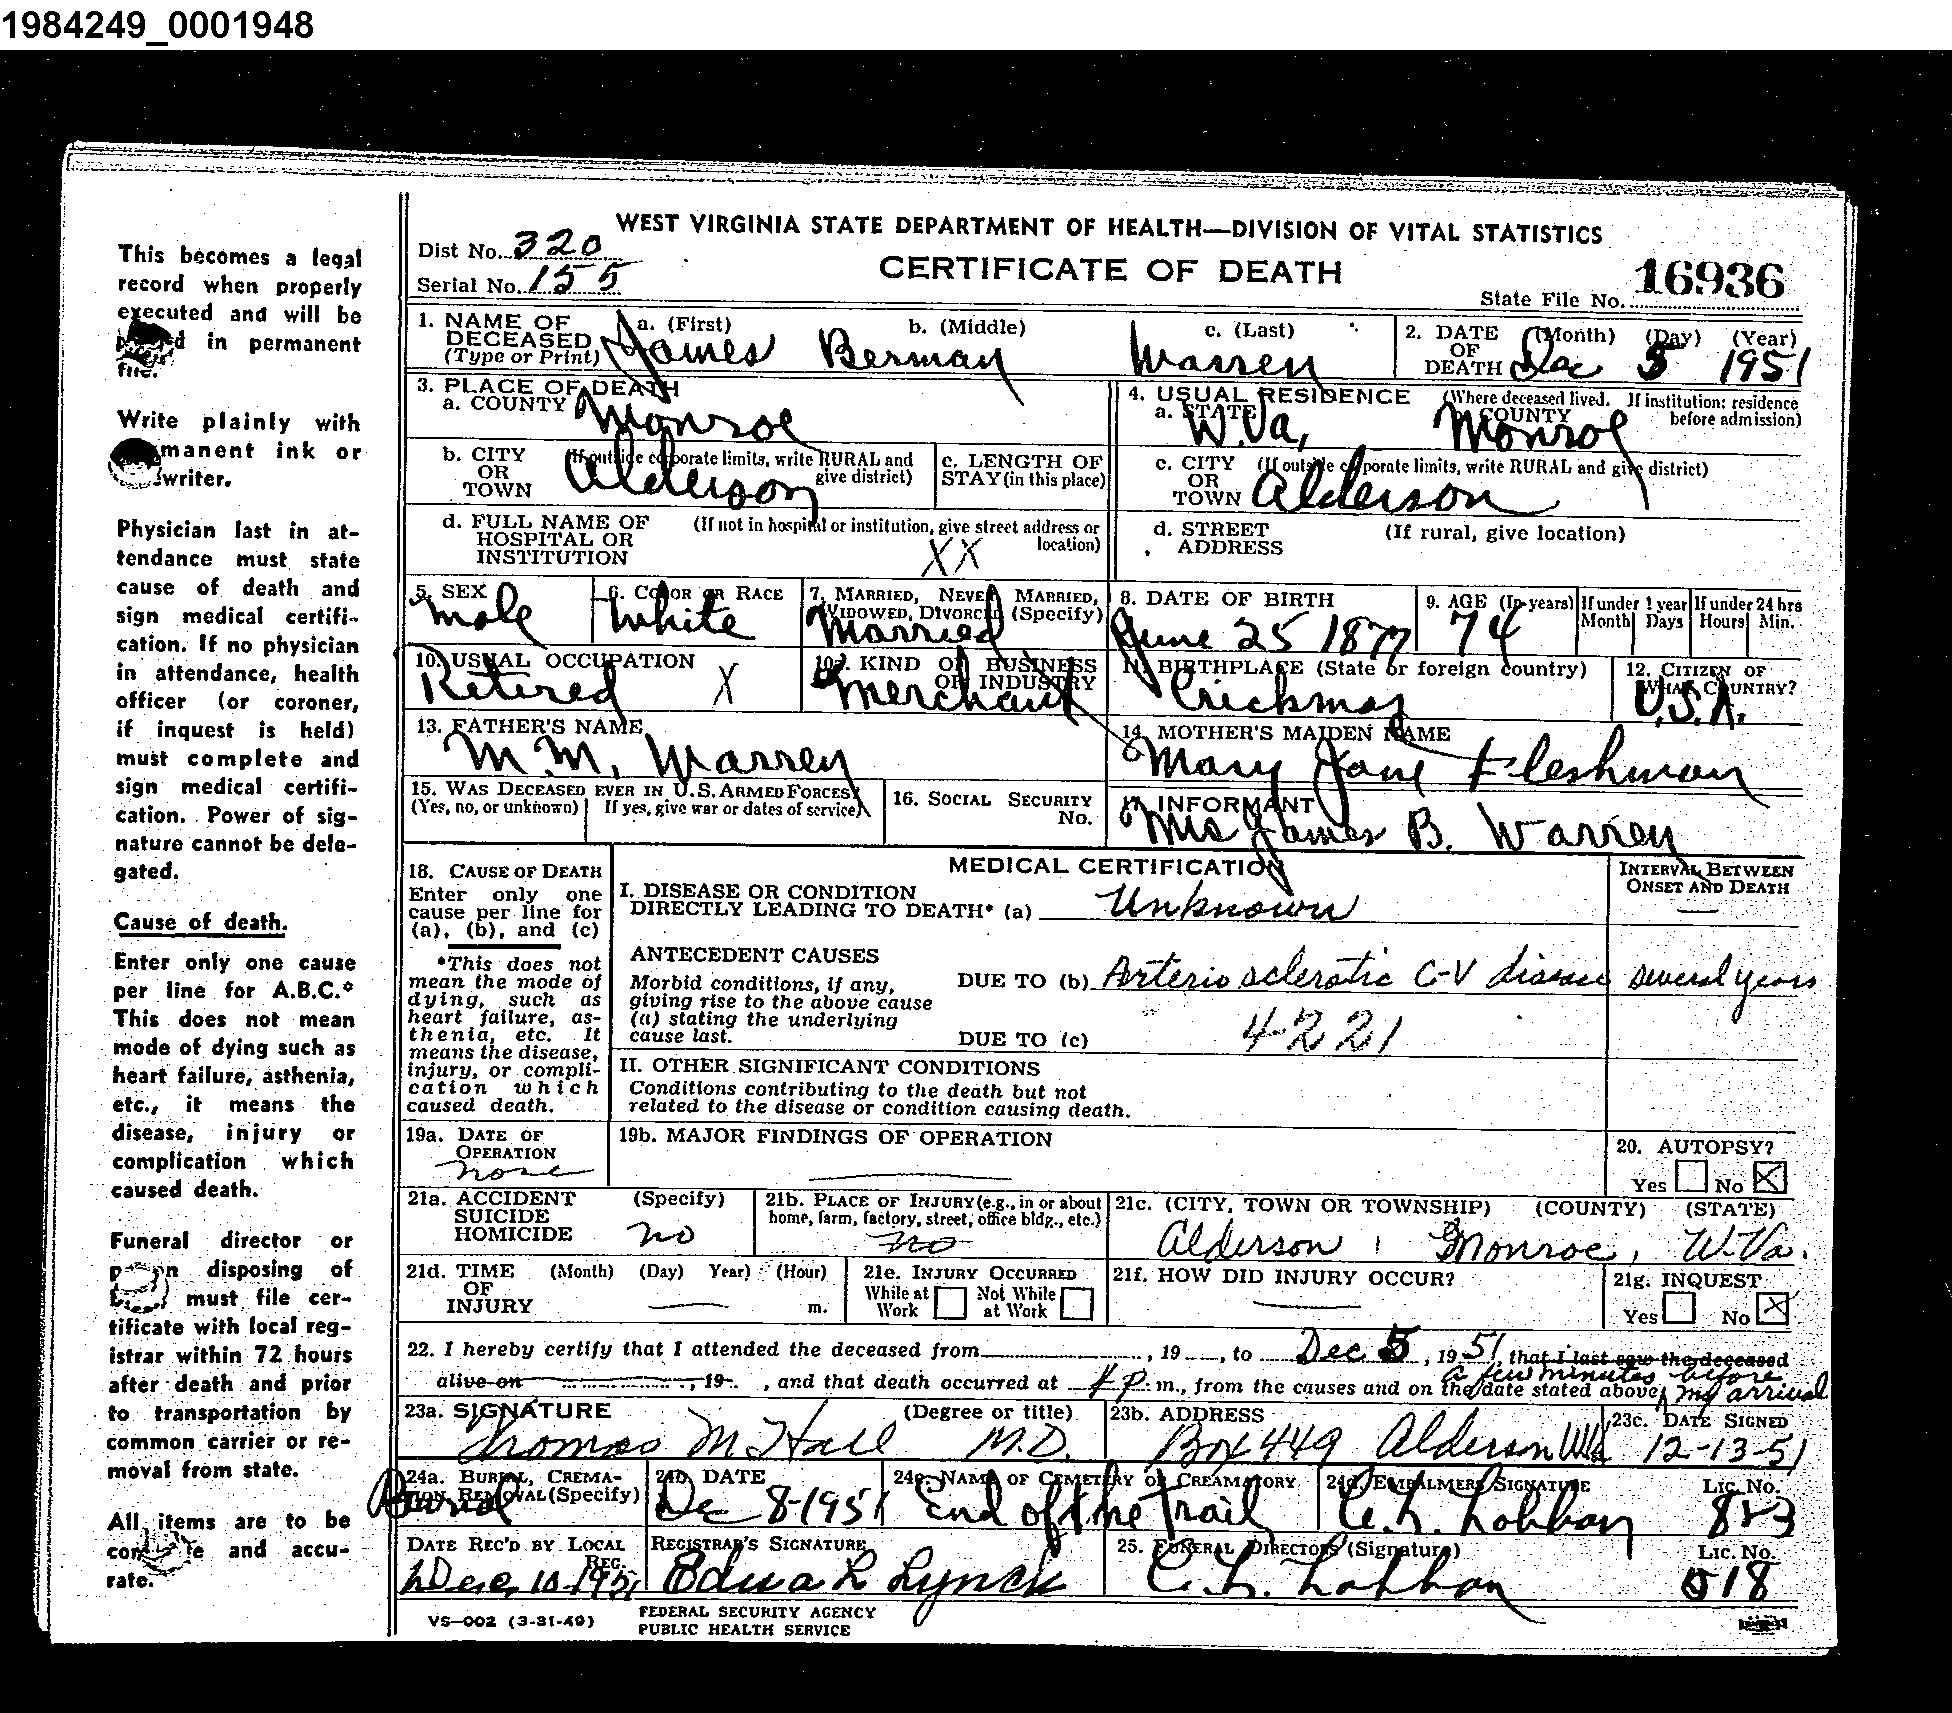 1984249_0001948
WEST VIRGINIA STATE DEPARTMENT OF HEALTH—DIVISION OF VITAL STATISTICS
Dist No. 320
Serial No. 155
CERTIFICATE OF DEATH
State File No. 16936
This becomes a legal
record when properly
executed and will be
in permanent
file.
Write plainly with
manent ink or
writer.
Physician last in at-
tendance must state
cause of death and
sign medical certifi-
cation. If no physician
in attendance, health
officer (or coroner,
if inquest is held)
must complete and
sign medical certifi-
cation. Power of sig-
nature cannot be dele-
gated.
Cause of death.
Enter only one cause
per line for A.B.C.*
This does not mean
mode of dying such as
heart failure, asthenia,
etc., it means the
disease, injury or
complication which
caused death.
Funeral director or
disposing of
must file cer-
tificate with local reg-
istrar within 72 hours
after death and prior
to transportation by
common carrier or re-
moval from state.
All items are to be
and accu-
rate.
1. NAME OF DECEASED (Type or Print) a. (First) James b. (Middle) Berman c. (Last) Warren
2. DATE OF DEATH (Month) (Day) (Year) Dec 5 1951
3. PLACE OF DEATH
a. COUNTY Monroe
4. USUAL RESIDENCE (Where deceased lived. If institution: residence before admission)
a. STATE W.Va, COUNTY Monroe
b. CITY OR TOWN (If outside corporate limits, write RURAL and give district) Alderson
c. LENGTH OF STAY (in this place)
c. CITY OR TOWN (If outside corporate limits, write RURAL and give district) Alderson
d. FULL NAME OF HOSPITAL OR INSTITUTION (If not in hospital or institution, give street address or location) XX
d. STREET ADDRESS (If rural, give location)
5. SEX Male
6. COLOR OR RACE White
7. MARRIED, NEVER MARRIED, WIDOWED, DIVORCED (Specify) Married
8. DATE OF BIRTH June 25 1877
9. AGE (In years) 74
If under 1 year Month Days
If under 24 hrs Hours Min.
10. USUAL OCCUPATION Retired X
KIND OF BUSINESS OR INDUSTRY Merchant
11. BIRTHPLACE (State or foreign country) Crickmer
12. CITIZEN OF WHAT COUNTRY? U.S.A.
13. FATHER'S NAME M.M. Warren
14. MOTHER'S MAIDEN NAME Mary Jane Fleshman
15. WAS DECEASED EVER IN U.S. ARMED FORCES?
(Yes, no, or unknown) If yes, give war or dates of service)
16. SOCIAL SECURITY No.
17. INFORMANT Mrs James B. Warren
MEDICAL CERTIFICATION
INTERVAL BETWEEN ONSET AND DEATH
18. CAUSE OF DEATH
Enter only one
cause per line for
(a), (b), and (c)
*This does not
mean the mode of
dying, such as
heart failure, as-
thenia, etc. It
means the disease,
injury, or compli-
cation which
caused death.
I. DISEASE OR CONDITION
DIRECTLY LEADING TO DEATH* (a) Unknown —
ANTECEDENT CAUSES
Morbid conditions, if any,
giving rise to the above cause
(a) stating the underlying
cause last.
DUE TO (b) Arterio sclerotic C-V disease several years
DUE TO (c) 4221
II. OTHER SIGNIFICANT CONDITIONS
Conditions contributing to the death but not
related to the disease or condition causing death.
19a. DATE OF OPERATION none
19b. MAJOR FINDINGS OF OPERATION
20. AUTOPSY?
Yes No X
21a. ACCIDENT SUICIDE HOMICIDE (Specify) no
21b. PLACE OF INJURY (e.g., in or about home, farm, factory, street, office bldg., etc.) no
21c. (CITY, TOWN OR TOWNSHIP) (COUNTY) (STATE)
Alderson, Monroe, W.Va.
21d. TIME OF INJURY (Month) (Day) Year) (Hour) m.
21e. INJURY OCCURRED
While at Work Not While at Work
21f. HOW DID INJURY OCCUR?
21g. INQUEST
Yes No X
22. I hereby certify that I attended the deceased from , 19 , to Dec 5, 1951, that I last saw the deceased
alive on , 19 , and that death occurred at 4 p. m., from the causes and on the date stated above, a few minutes before my arrival
23a. SIGNATURE (Degree or title) Thomas M Hall M.D.
23b. ADDRESS Box 449 Alderson W.Va
23c. DATE SIGNED 12-13-51
24a. BURIAL, CREMATION REMOVAL (Specify) Burial
24b. DATE Dec 8-1951
24c. NAME OF CEMETERY OR CREAMATORY End of the Trail
24d. EMBALMERS SIGNATURE C.L. Lobban
Lic. No. 823
DATE REC'D BY LOCAL REG. Dec 10 1951
REGISTRAR'S SIGNATURE Edna L Lynch
25. FUNERAL DIRECTORS (Signature) C.L. Lobban
Lic. No. 518
VS—002 (3-31-49)
FEDERAL SECURITY AGENCY
PUBLIC HEALTH SERVICE